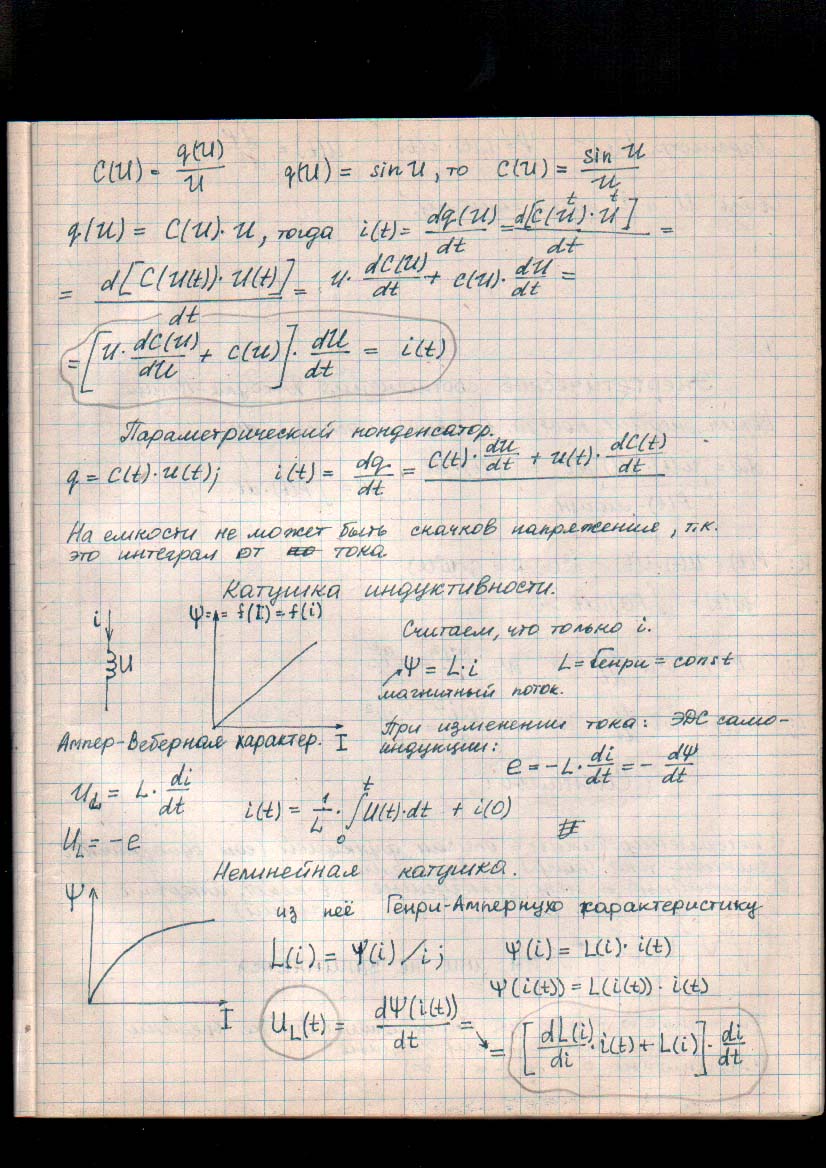 C(U) = q(U)/U    q(U) = sin U, то    C(U) = sin U/U
q(U) = C(U)·U, тогда i(t) = dq(U)/dt = d[C(U)·U]/dt =
= d[C(U(t))·U(t)]/dt = U·dC(U)/dt + C(U)·dU/dt =
= [U·dC(U)/dU + C(U)]·dU/dt = i(t)
Параметрический конденсатор.
q = C(t)·U(t);    i(t) = dq/dt = C(t)·dU/dt + U(t)·dC(t)/dt
На емкости не может быть скачков напряжение, т.к.
это интеграл от тока
Катушка индуктивности.
i
Ψ = = f(I) = f(i)
Считаем, что только i.
U
Ψ = L·i    L = Генри = const
магнитный поток.
Ампер-Веберная характер. I
При изменении тока: ЭДС само-
индукции:
e = -L·di/dt = - dΨ/dt
U_L = L·di/dt
i(t) = 1/L·∫₀ᵗ U(t)·dt + i(0)
U_L = -e
Нелинейная катушка.
Ψ
из неё Генри-Амперную характеристику
L(i) = Ψ(i)/i;    Ψ(i) = L(i)·i(t)
Ψ(i(t)) = L(i(t))·i(t)
I
U_L(t) = dΨ(i(t))/dt =
= [dL(i)/di·i(t) + L(i)]·di/dt